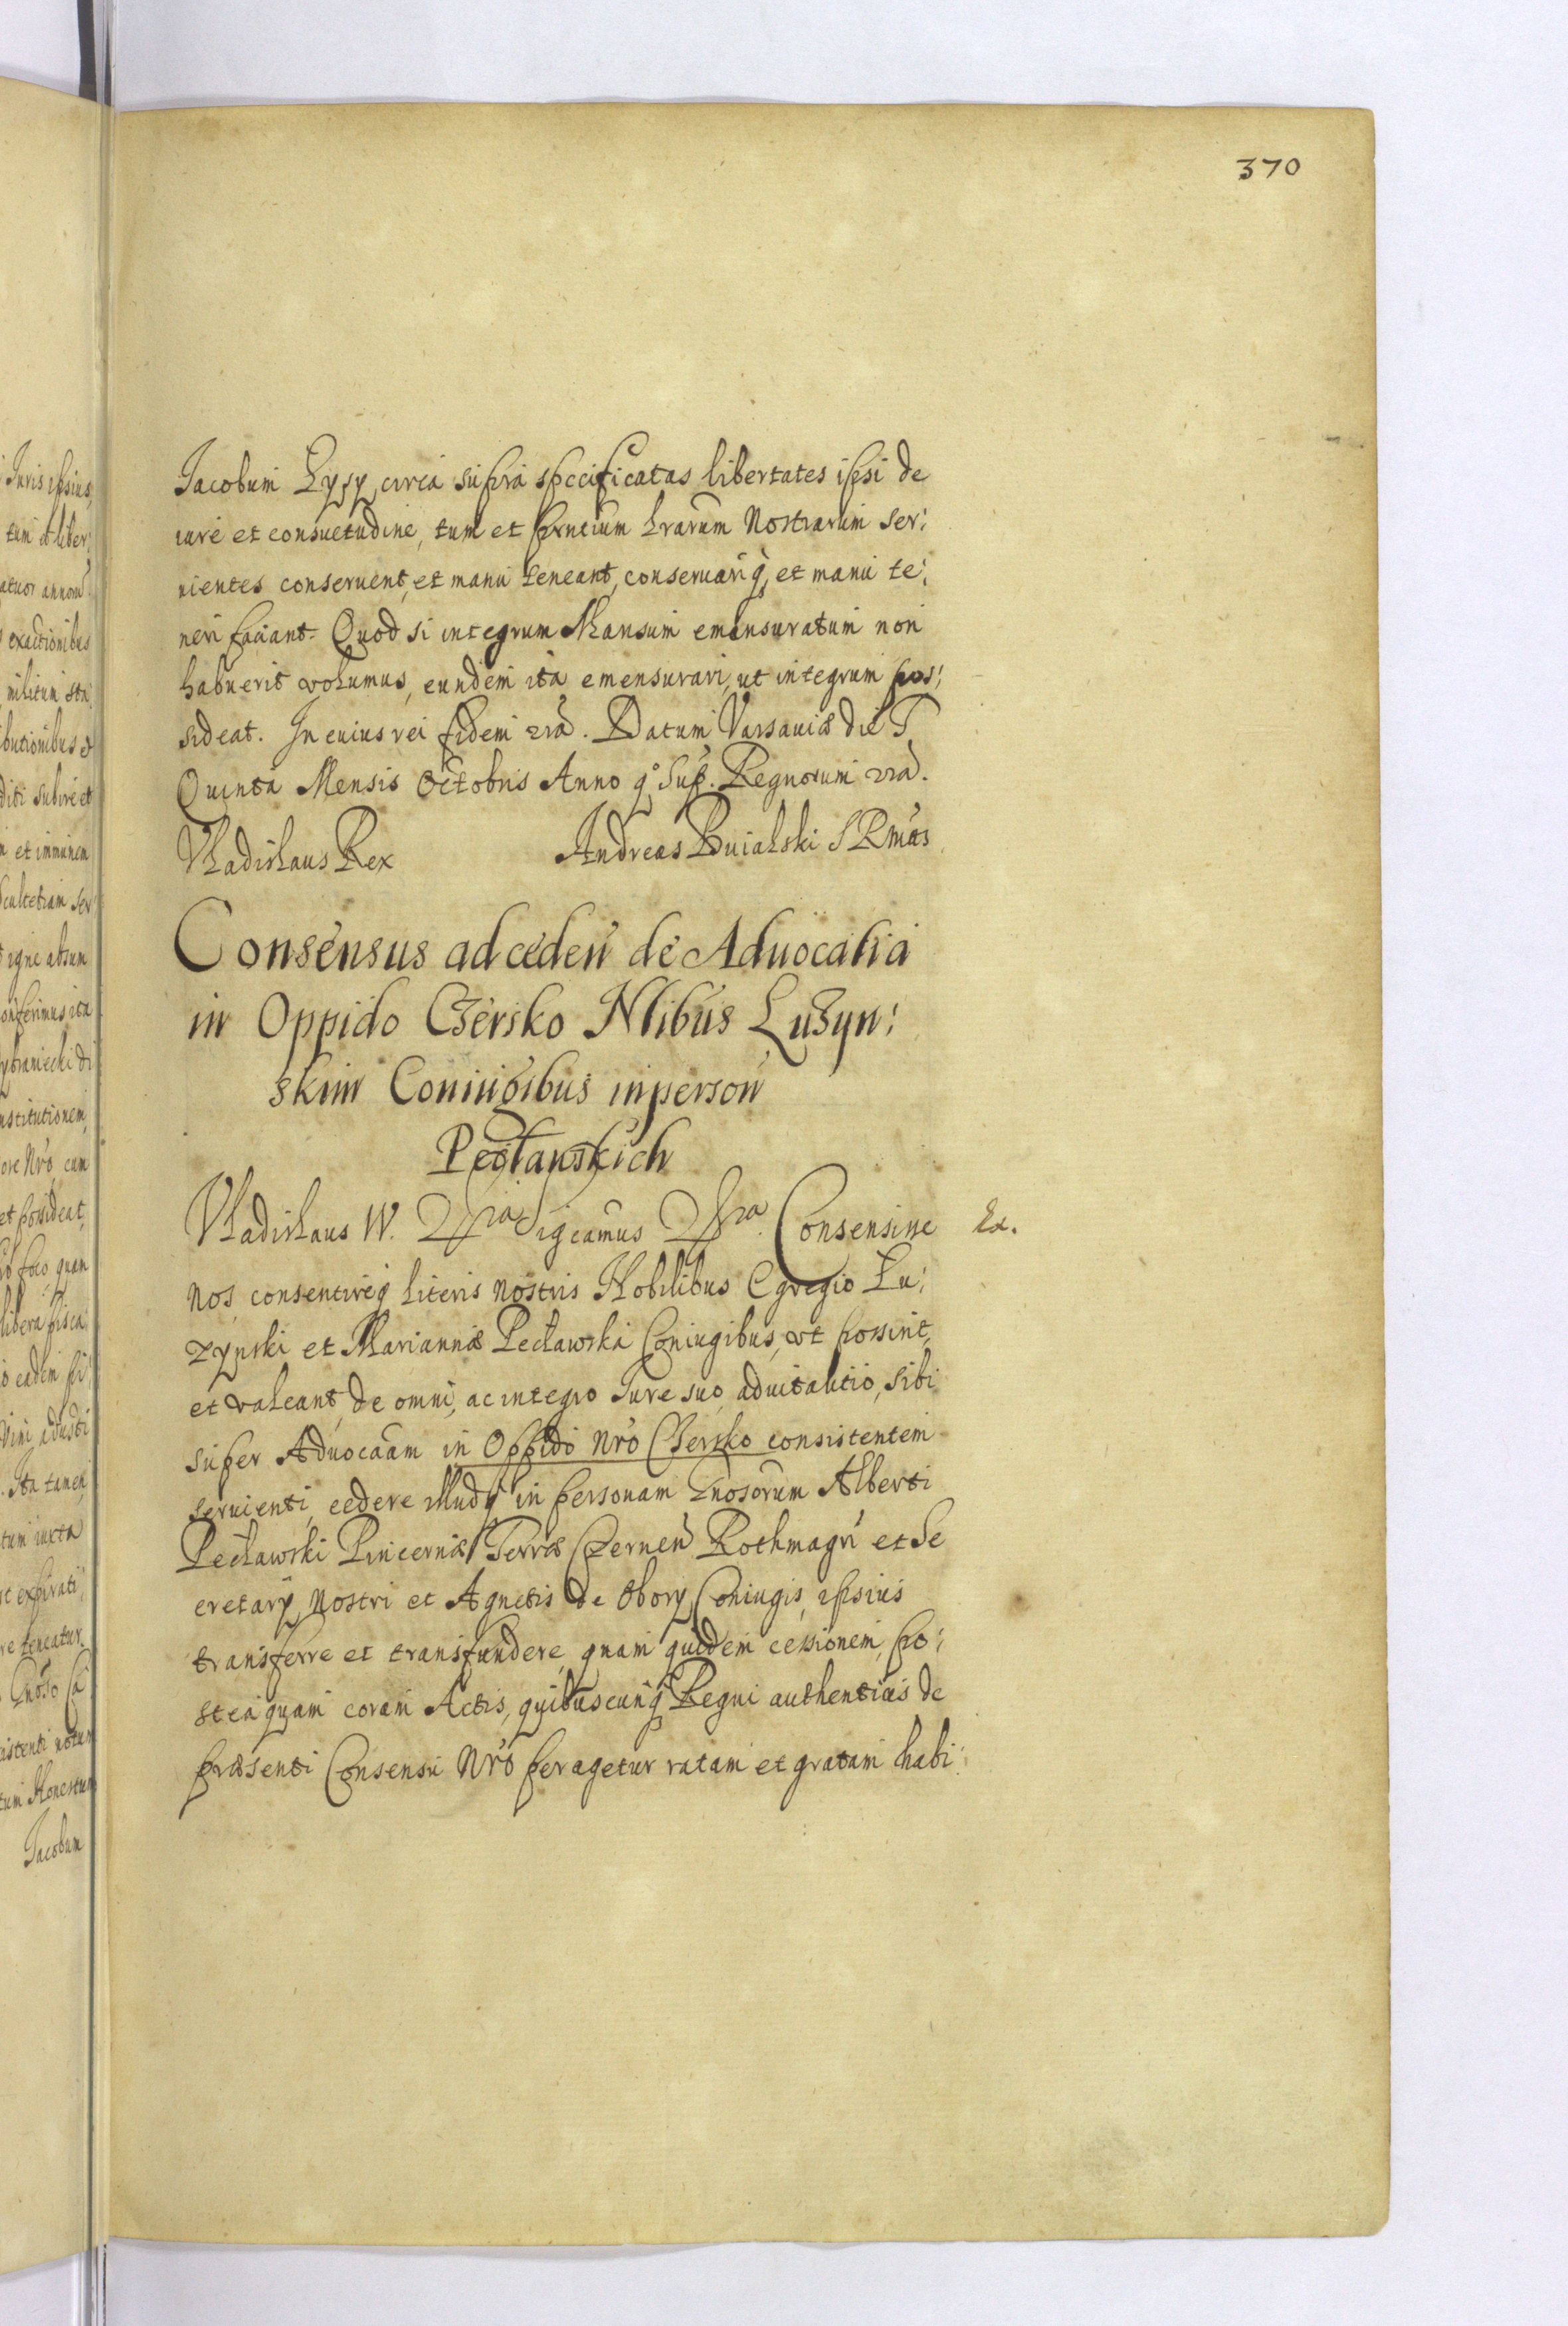 370
Jacobum Łysy, circa supra specificatas libertates ipsi de
iure et consuetudine, tum et pñtium Lrarum Nostrarum ser:
uientes conseruent, et manu teneant, conseruariq̃, et manu te:
neri faciant. Quod si integrum Mansum emensuratum non
habuerit volumus, eundem ita emensurari, ut integrum pos:
sideat. In cuius rei fidem &ra. Datum Varsauiæ die
Quinta Mensis Octobris Anno q° Sup. Regnorum &ra.
Vladislaus Rex Andreas Buialski SRMtas
Consensus ad ceden̄ de Aduocatia
in Oppido Czersko Nlibus Luzyn:
skim Coniugibus in person̄
Pęcławskich
Vladislaus IV. &ra Sigcamus &ra. Consensisse
Ex.
nos consentireq̃ literis nostris Nobilibus Egregio Lu:
zynski et Mariannæ Pecławska Coniugibus, vt possint,
et valeant, de omni, ac integro Iure suo aduitalitio, sibi
super Aduocaam in Oppido Nro Czersko consistentem
seruienti, cedere illudq̃ in personam Gnosorum Alberti
Pecławski Pincernæ Terræ Czernen̄ Rothmagri et Se
cretarÿ Nostri et Agnetis de Obory Coniugis ipsius
transferre et transfundere, quam quidem cessionem, po:
steaquam coram Actis, quibuscunq̃ Regni authenticis de
præsenti Consensu Nro peragetur ratam et gratam habi:
Iuris ipsius,
tum et liber:
atuor annorū
exactionibus
militum sta
ibutionibus &
diti subire et
et immunem
igne absum
nstitutionem,
ore Nro, cum
et possideat,
foco, quam
libera pisca:
eadem
Vini adusti
Ita tamen,
tum iuxta
expirati:
re teneatur.
Gnoso Ca
istenti notum
tum Honestum
Jacobum